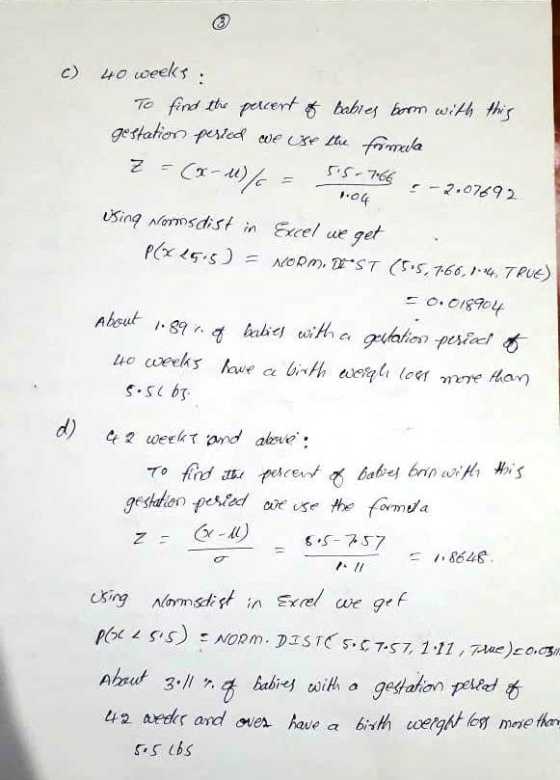 ③
c) 40 weeks :
To find the percent of babies born with this
gestation period we use the formula
Z = (x-μ)/σ = 5.5-7.66 / 1.04 = -2.07692
Using Normsdist in Excel we get
P(x<5.5) = NORM.DIST (5.5, 7.66, 1.04, TRUE)
= 0.018904
About 1.89 % of babies with a gestation period of
40 weeks have a birth weigh loss more than
5.5 lbs.
d) 42 weeks and above :
To find the percent of babies born with this
gestation period we use the formula
Z = (x-μ) / σ = 5.5-7.57 / 1.11 = 1.8648.
Using Normsdist in Excel we get
P(x < 5.5) = NORM. DIST( 5.5, 7.57, 1.11, True) = 0.0311
About 3.11 % of babies with a gestation period of
42 weeks and over have a birth weight loss more than
5.5 lbs